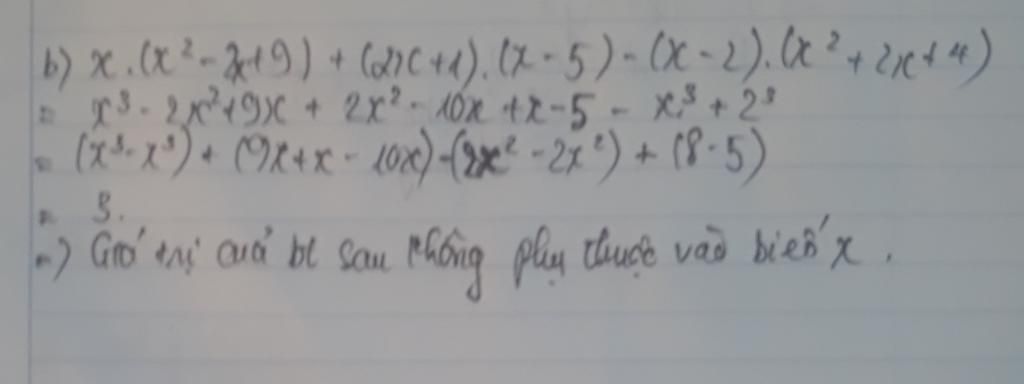 b) x.(x² - 2x+9) + (2x+1).(x-5) - (x-2).(x² + 2x+4)
= x³ - 2x²+9x + 2x² - 10x +x-5 - x³ + 2³
= (x³-x³) + (9x+x - 10x) - (2x² - 2x²) + (8-5)
= 3.
=) Giá trị của bt sau không phụ thuộc vào biến x.